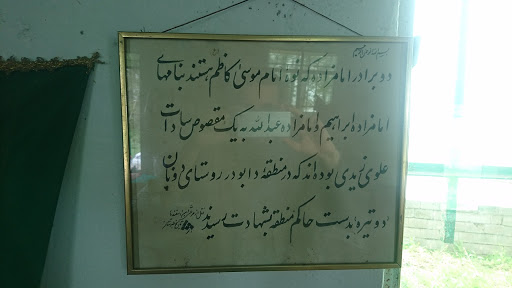 بسم الله الرحمن الرحیم
دو برادر امامزاده که نوهٔ امام موسیٰ کاظم هستند بنامهای
امامزاده ابراهیم و امامزاده عبدالله به یک مقصوص سادات
علوی زیدی بوده‌اند که در منطقهٔ دابو در روستای
دوتیره بدست حاکم منطقه بشهادت رسیدند